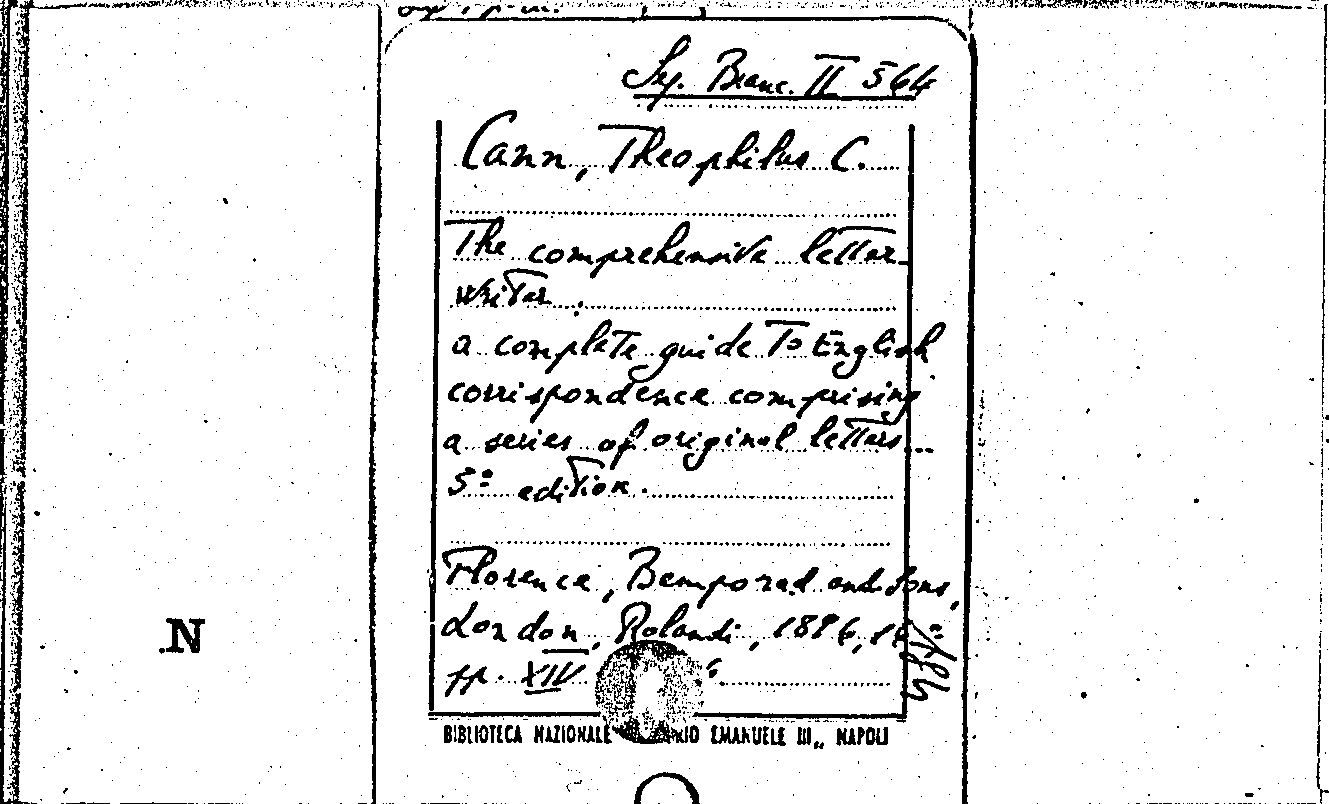 Sy. Branc. II 564
Cann, Theophilus C.
The comprehensive letter
writer.
a complete guide to English
correspondence comprising
a series of original letters...
5ª edition.
Florence, Bemporad and Sons,
London, Rolandi, 1896,
pp. XIV
BIBLIOTECA NAZIONALE EMANUELE III„ NAPOLI
N